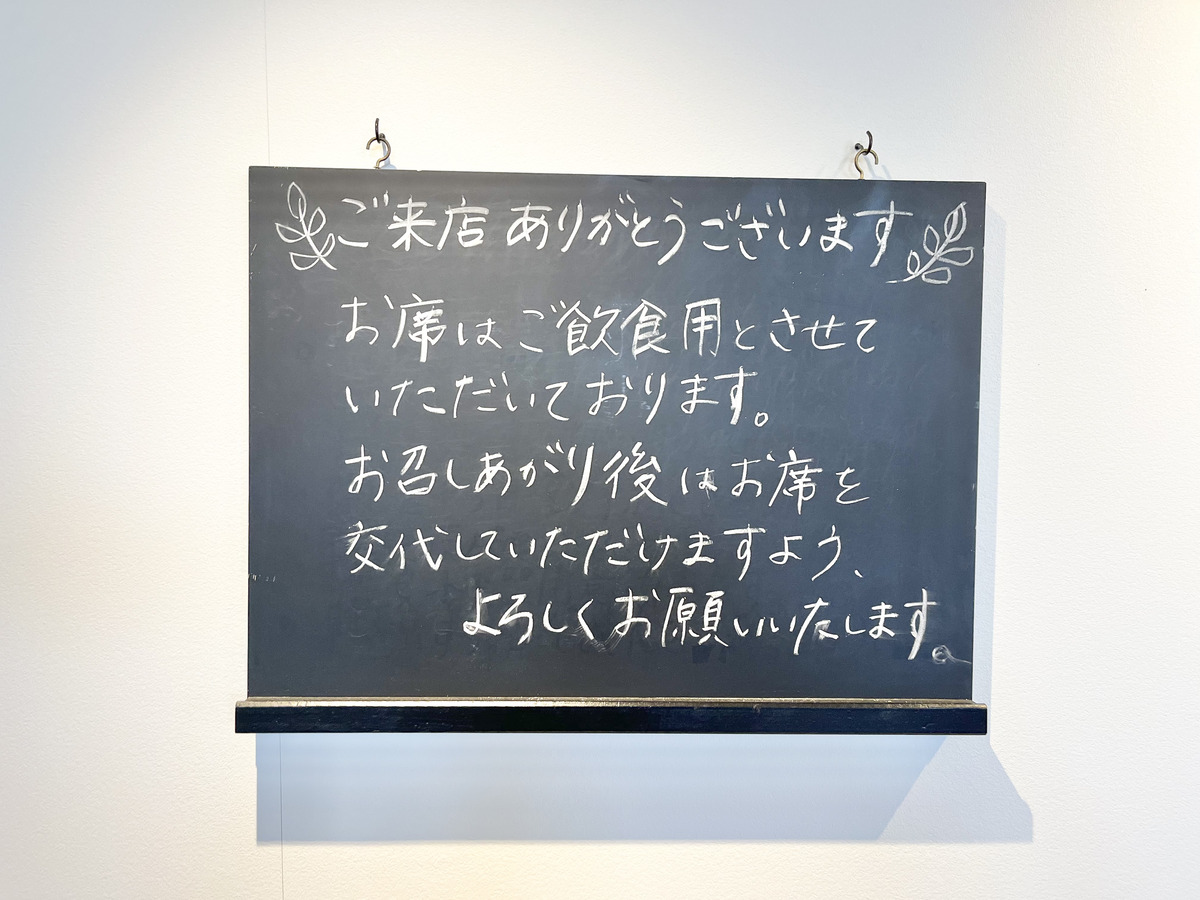 ご来店 ありがとうございます
お席は ご飲食用とさせて
いただいております。
お召しあがり後はお席を
交代していただけますよう、
よろしくお願いいたします。